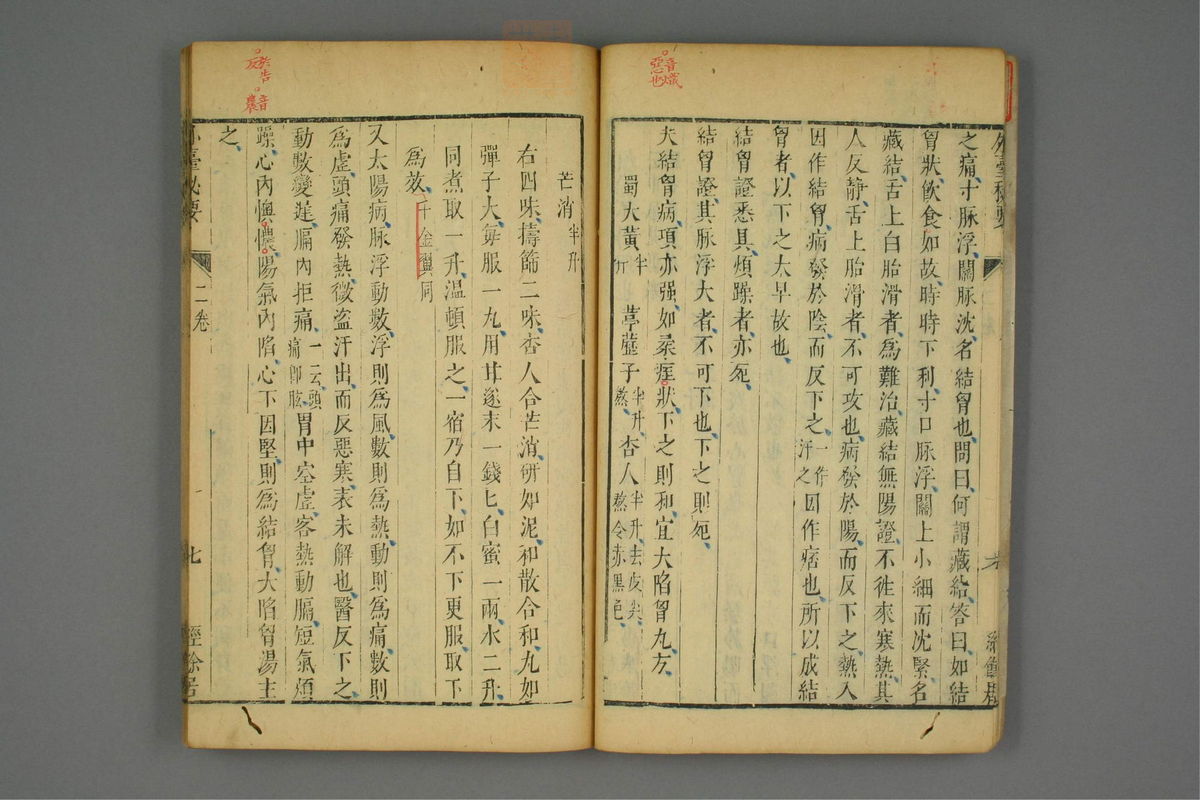 外臺秘要
之痛寸脉浮關脉沈名結胷也問曰何謂藏結答曰如結
胷狀飲食如故時時下利寸口脉浮關上小細而沈緊名
藏結舌上白胎滑者爲難治藏結無陽證不徃來寒熱其
人反静舌上胎滑者不可攻也病發於陽而反下之熱入
因作結胷病發於陰而反下之一作汗之因作痞也所以成結
胷者以下之太早故也
結胷證悉具煩躁者亦死
結胷證其脉浮大者不可下也下之則死
夫結胷病項亦强如柔痓狀下之則和宜大陷胷丸方
蜀大黃半斤 葶藶子半升熬 杏人半升去皮尖熬令赤黑色
音熾
惡也
芒消半升
右四味擣篩二味杏人合芒消研如泥和散合和丸如
彈子大每服一丸用甘遂末一錢匕白蜜一兩水二升
同煮取一升温頓服之一宿乃自下如不下更服取下
爲效千金翼同
又太陽病脉浮動數浮則爲風數則爲熱動則爲痛數則
爲虛頭痛發熱微盗汗出而反惡寒表未解也醫反下之
動數變遲膈内拒痛一云頭痛即眩胃中空虛客熱動膈短氣煩
躁心内懊憹陽氣内陷心下因堅則爲結胷大陷胷湯主
之
外臺秘要
二卷
七
經餘居
音